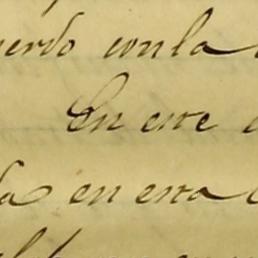 uerdo con la
En este
da en esta